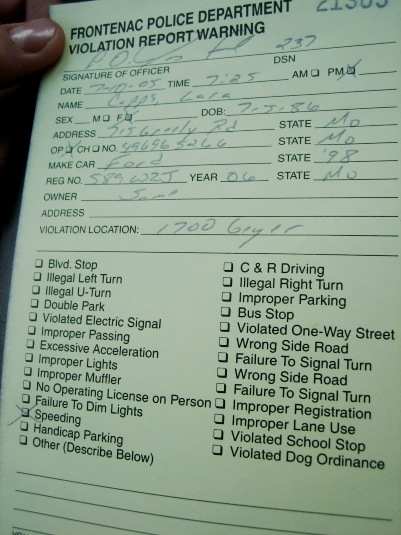 FRONTENAC POLICE DEPARTMENT
VIOLATION REPORT WARNING 21303
P.O. 237
SIGNATURE OF OFFICER DSN
DATE 7-10-05 TIME 7:25 AM ☐ PM ☒
NAME Capps Lara
SEX M ☐ F ☒ DOB: 7-5-86
ADDRESS Rd STATE Mo
OP ☒ CH ☐ NO. STATE Mo
MAKE CAR Ford STATE '98
REG NO. 589 WZJ YEAR 06 STATE Mo
OWNER Same
ADDRESS
VIOLATION LOCATION: 1700 Geyer
☐ Blvd. Stop
☐ Illegal Left Turn
☐ Illegal U-Turn
☐ Double Park
☐ Violated Electric Signal
☐ Improper Passing
☐ Excessive Acceleration
☐ Improper Lights
☐ Improper Muffler
☐ No Operating License on Person
☐ Failure To Dim Lights
☒ Speeding
☐ Handicap Parking
☐ Other (Describe Below)
☐ C & R Driving
☐ Illegal Right Turn
☐ Improper Parking
☐ Bus Stop
☐ Violated One-Way Street
☐ Wrong Side Road
☐ Failure To Signal Turn
☐ Wrong Side Road
☐ Failure To Signal Turn
☐ Improper Registration
☐ Improper Lane Use
☐ Violated School Stop
☐ Violated Dog Ordinance